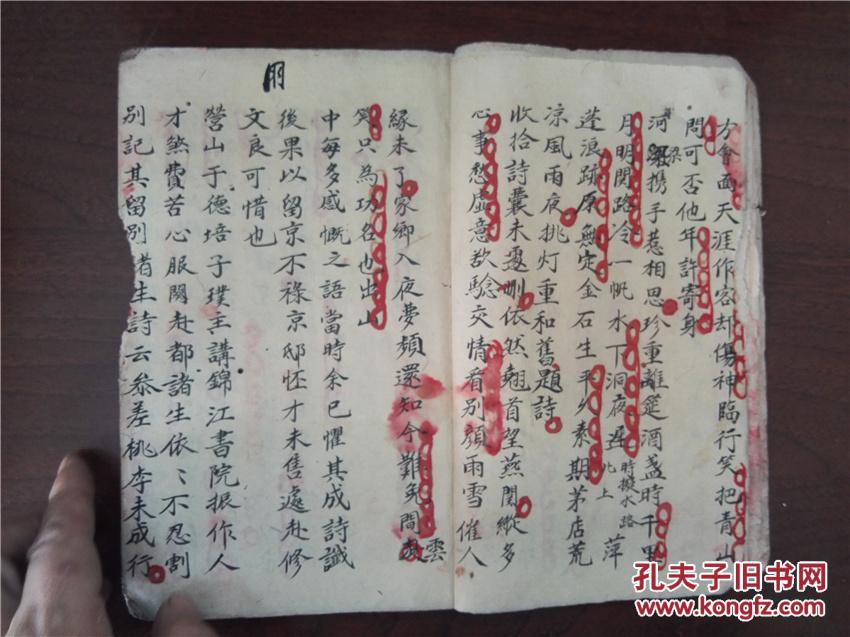 方會面天涯作客却傷神臨行笑把青山
問可否他年許寄身
河梁携手惹相思珍重離筵酒盞時千里
月明関路令一帆水下洞夜遲時擬水路北上萍
蓬浪跡原無定金石生平久素期茅店荒
凉風雨夜挑灯重和舊題詩
收拾詩囊未遽删依然翹首望燕関縱多
心事愁虛意欲騐交情看別顔雨雪催人
緣未了家鄉入夜夢頻還知今難免間雲
笑只為功名也出山
中每多感慨之語當時余已懼其成詩讖
後果以留京不祿京邸怀才未售遽赴修
文良可惜也
營山于德培子璞主講錦江書院振作人
才煞費苦心服闋赴都諸生依、不忍割
別記其留別诸生詩云叅差桃李未成行
用
孔夫子旧书网
www.kongfz.com